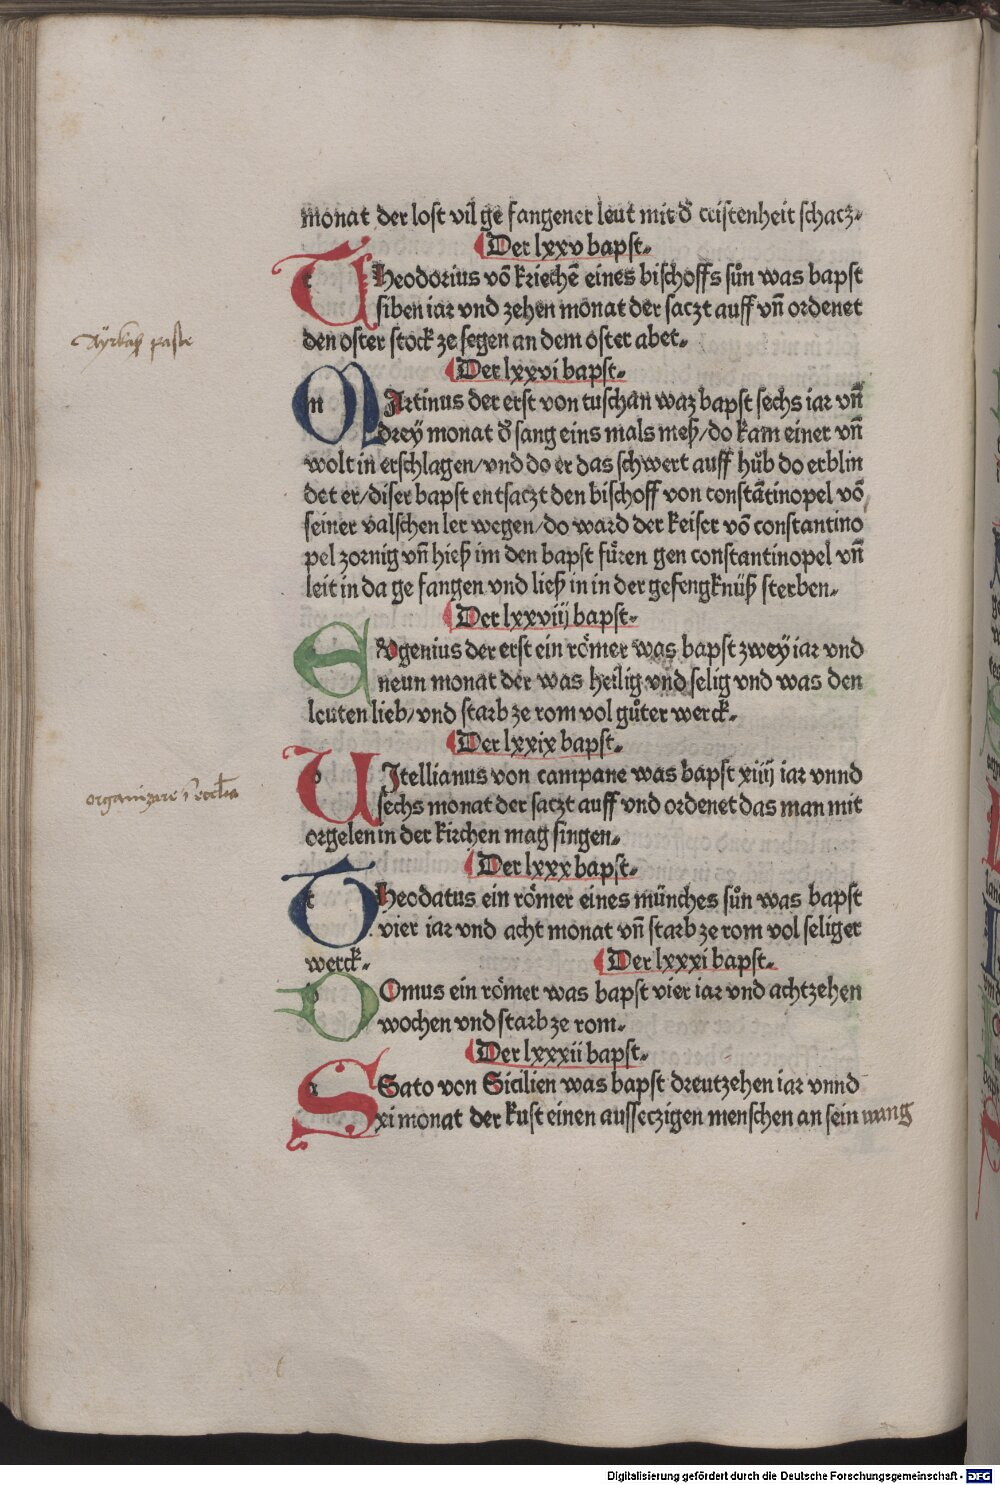 monat der lost vil ge fangener leut mit d̕ ccistenheit schacz.
Der lxxv bapst.
THeodorius vō kriechē eines bischoffs sůn was bapst
siben iar vnd zehen monat der saczt auff vn̄ ordenet
den oster stock ze segen an dem oster abet.
Der lxxvi bapst.
MArtinus der erst von tuschan waz bapst sechs iar vn̄
drey monat d̕ sang eins mals meß/do kam einer vn̄
wolt in erschlagen/vnd do er das schwert auff hůb do erblin
det er/diser bapst entsaczt den bischoff von constātinopel vō
seiner valschen ler wegen/do ward der keiser vō constantino
pel zoernig vn̄ hieß im den bapst fůren gen constantinopel vn̄
leit in da ge fangen vnd ließ in in der gefengknüß sterben.
Der lxxviij bapst.
EVgenius der erst ein römer was bapst zwey iar vnd
neun monat der was heilig vnd selig vnd was den
leuten lieb/vnd starb ze rom vol gůter werck.
Der lxxix bapst.
VJtellianus von campane was bapst xiiij iar vnnd
sechs monat der saczt auff vnd ordenet das man mit
orgelen in der kirchen mag singen.
organizare
Der lxxx bapst.
THeodatus ein römer eines münches sůn was bapst
vier iar vnd acht monat vn̄ starb ze rom vol seliger
werck.
Der lxxxi bapst.
DOmus ein römer was bapst vier iar vnd achtzehen
wochen vnd starb ze rom.
Der lxxxii bapst.
SSato von Sicilien was bapst dreutzehen iar vnnd
xi monat der kust einen ausseczigen menschen an sein wang
Digitalisierung gefördert durch die Deutsche Forschungsgemeinschaft - DFG